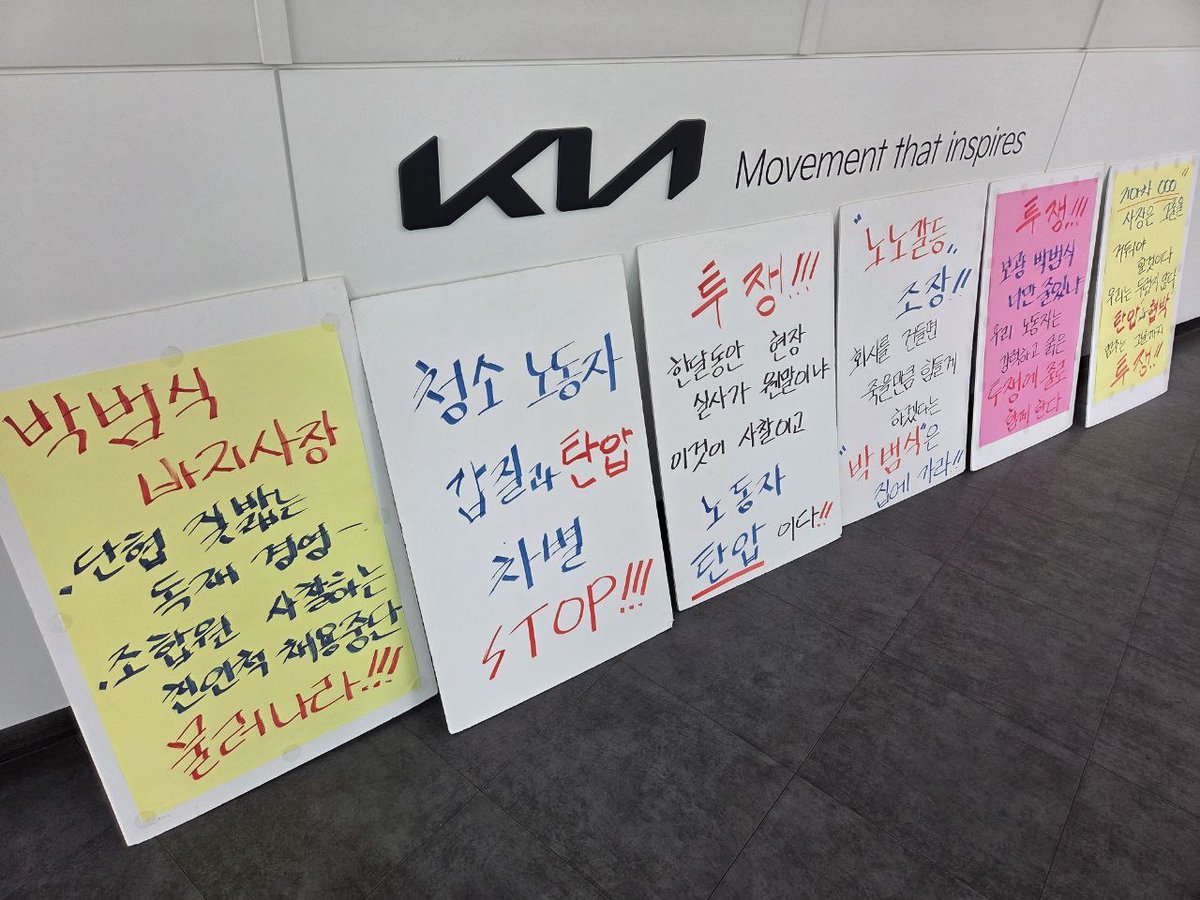 KIA
Movement that inspires
박범식
바지사장
·단협 짓밟는
독재 경영-
·조합원 사찰하는
친인척 채용중단
물러나라!!!
청소 노동자
갑질과 탄압
차별
STOP!!!
투쟁!!!
한달동안 현장
실사가 웬말이냐
이것이 사찰이고
노동자
탄압 이다!!
"노노갈등"
조장!!
회사를 건들면
죽을만큼 힘들게
하겠다는
"박범식"은
집에 가라!!
투쟁!!!
보광 박범식
너만 줄있냐
우리 노동자는
강력하고 굵은
투쟁에 줄로
함께 한다
기아차 OOO"
사장은 그놈을
거둬야
할것이다
우리는 두렵지 않다
탄압과 협박
멈추는 그날까지
투쟁!!